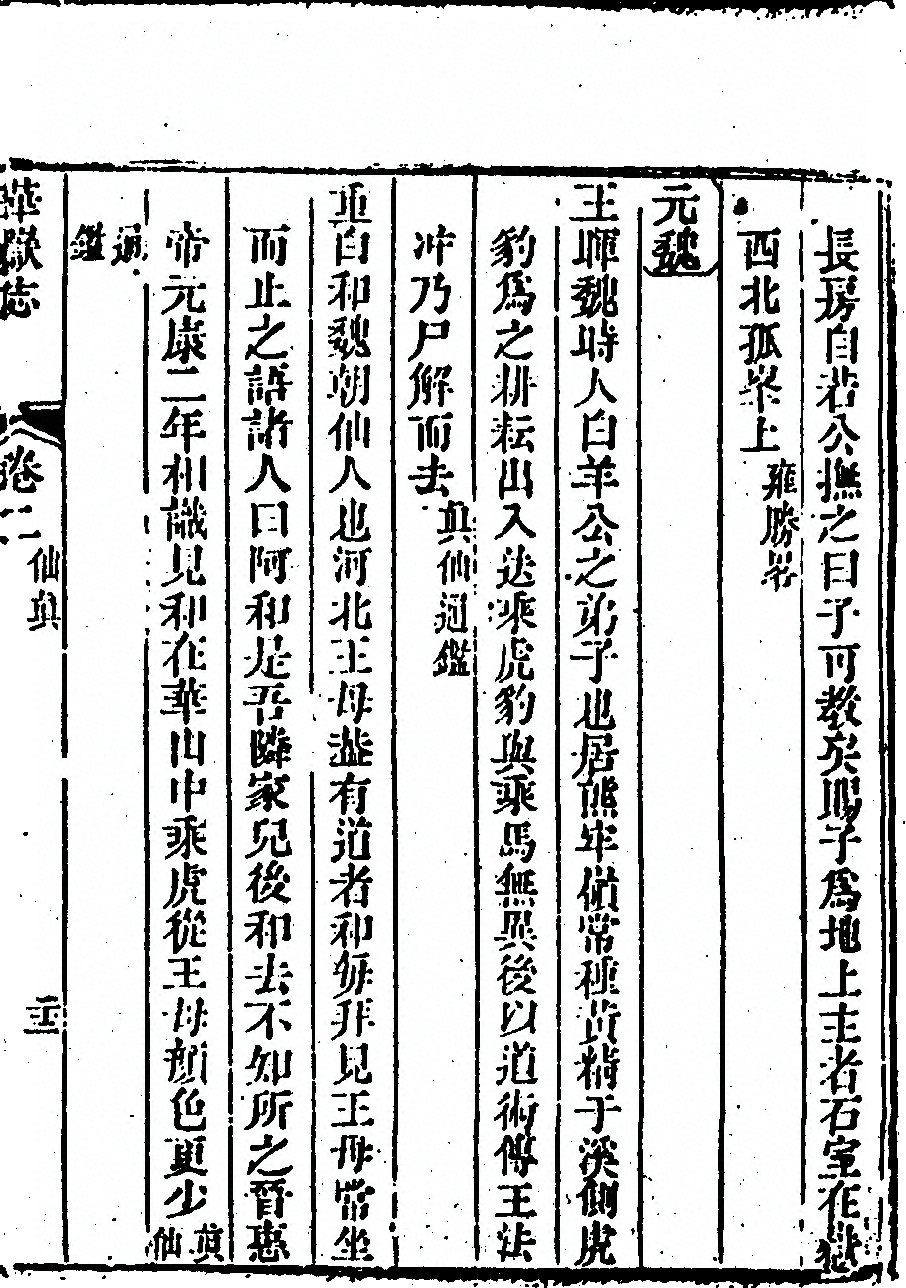 長房自若公撫之曰子可教矣賜子爲地上主者石室在嶽
西北孤峯上雍勝畧
元魏
王暉魏時人白羊公之弟子也居熊牢嶺常種黃精于溪側虎
豹爲之耕耘出入迭乘虎豹與乘馬無異後以道術傳王法
冲乃尸解而去眞仙通鑑
重白和魏朝仙人也河北王母盖有道者和每拜見王母常坐
而止之語諸人曰阿和是吾隣家兒後和去不知所之晉惠
帝元康二年相識見和在華山中乘虎從王母顏色更少眞仙
通鑑
華嶽志
卷二
仙眞